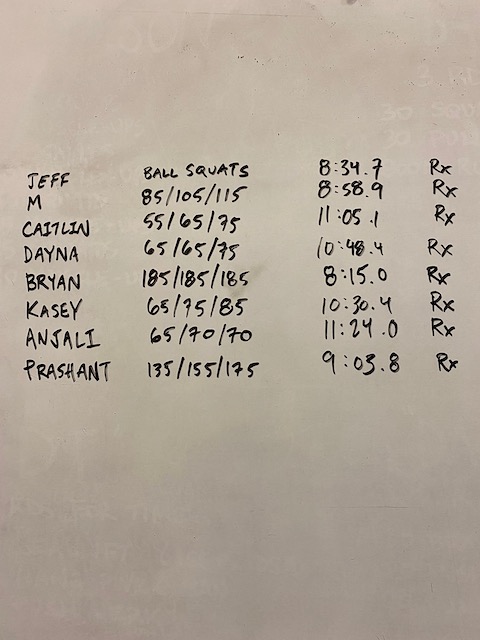 JEFF BALL SQUATS 8:34.7 Rx
M 85/105/115 8:58.9 Rx
CAITLIN 55/65/75 11:05.1 Rx
DAYNA 65/65/75 10:48.4 Rx
BRYAN 185/185/185 8:15.0 Rx
KASEY 65/75/85 10:30.4 Rx
ANJALI 65/70/70 11:24.0 Rx
PRASHANT 135/155/175 9:03.8 Rx